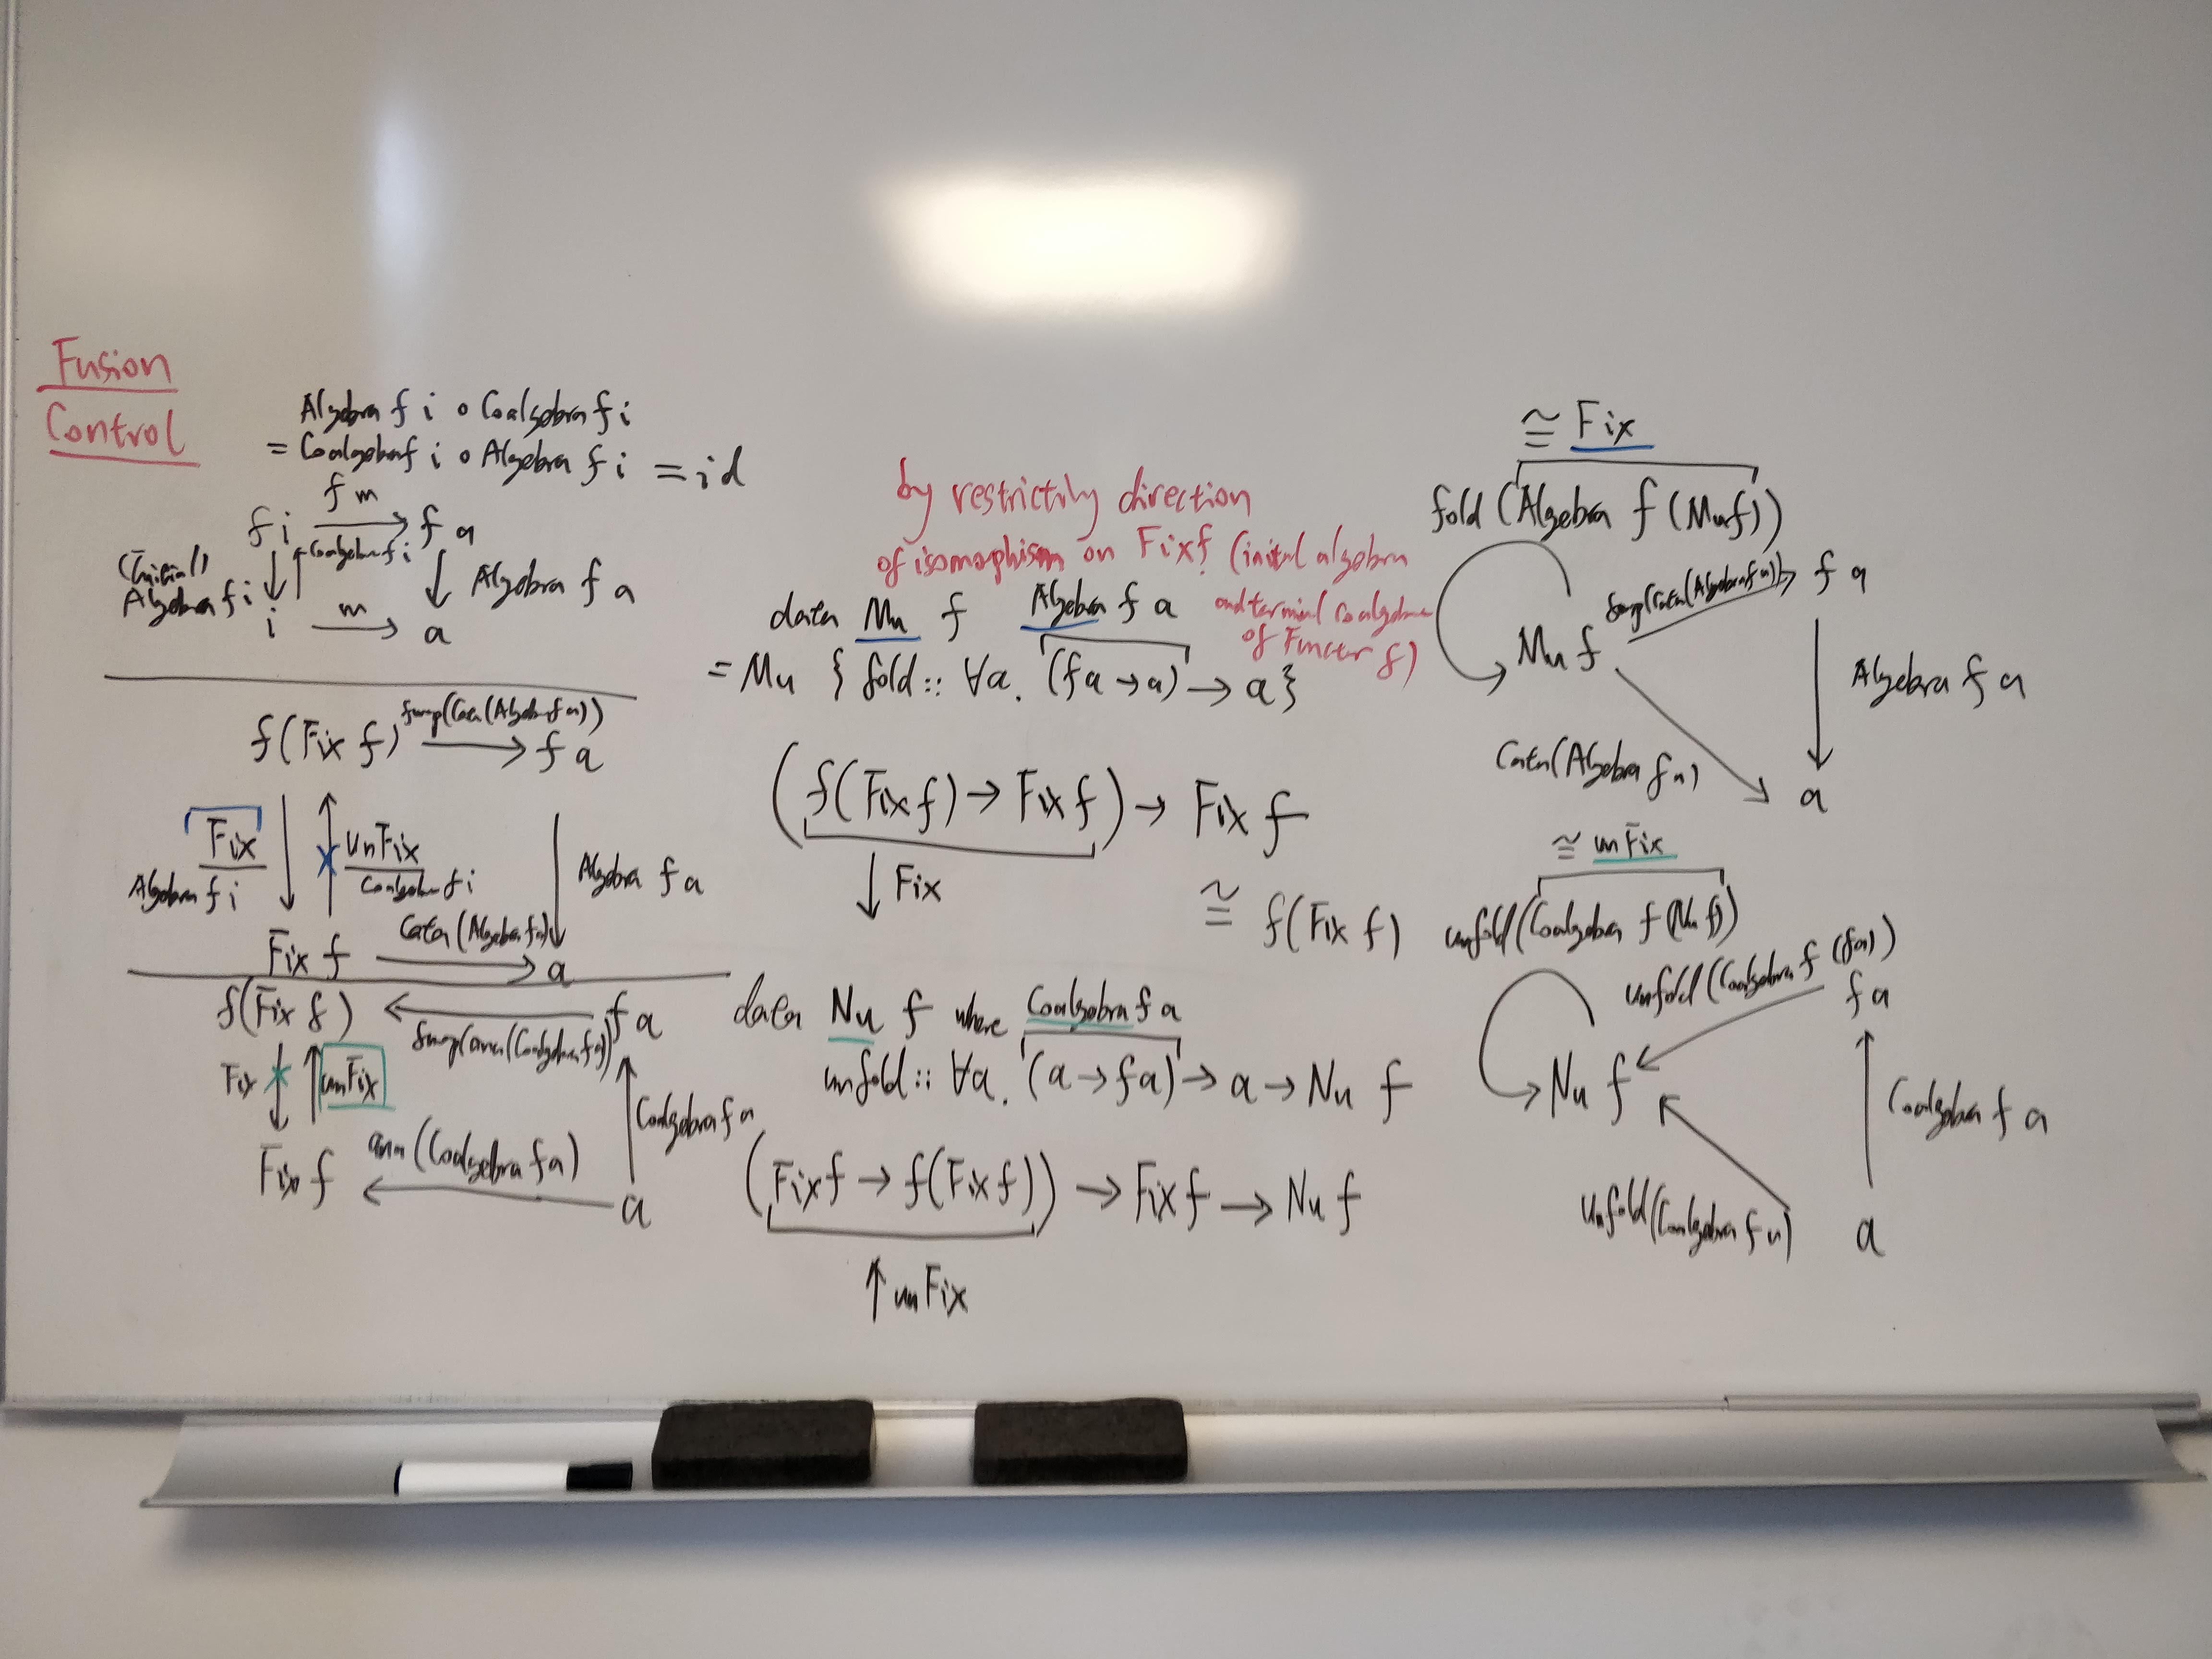 Fusion
Control
Algebra f i ∘ Coalgebra f i
= Coalgebra f i ∘ Algebra f i = id
f m
f i → f a
(Initial)
Algebra f i
Coalgebra f i
Algebra f a
m
i → a
fmap(Cata(Algebra f a))
f(Fix f) → f a
Fix
Algebra f i
unFix
Coalgebra f i
Algebra f a
Cata(Algebra f a)
Fix f → a
f(Fix f) ← f a
fmap(ana(Coalgebra f a))
Fix
unFix
Coalgebra f a
ana(Coalgebra f a)
Fix f ← a
by restrictily direction
of isomorphism on Fix f (initial algebra
and terminal coalgebra
of Functor f)
data Mu f
Algebra f a
= Mu { fold :: ∀a. (f a → a) → a }
(f(Fix f) → Fix f) → Fix f
↓ Fix
≅ f(Fix f)
data Nu f where
Coalgebra f a
unfold :: ∀a. (a → f a) → a → Nu f
(Fix f → f(Fix f)) → Fix f → Nu f
↑ unFix
≅ Fix
fold (Algebra f (Mu f))
fmap(Cata(Algebra f a))
f a
Mu f
Algebra f a
Cata(Algebra f a)
a
≅ unFix
unfold(Coalgebra f (Nu f))
unfold(Coalgebra f (f a))
f a
Nu f
Coalgebra f a
unfold(Coalgebra f a)
a